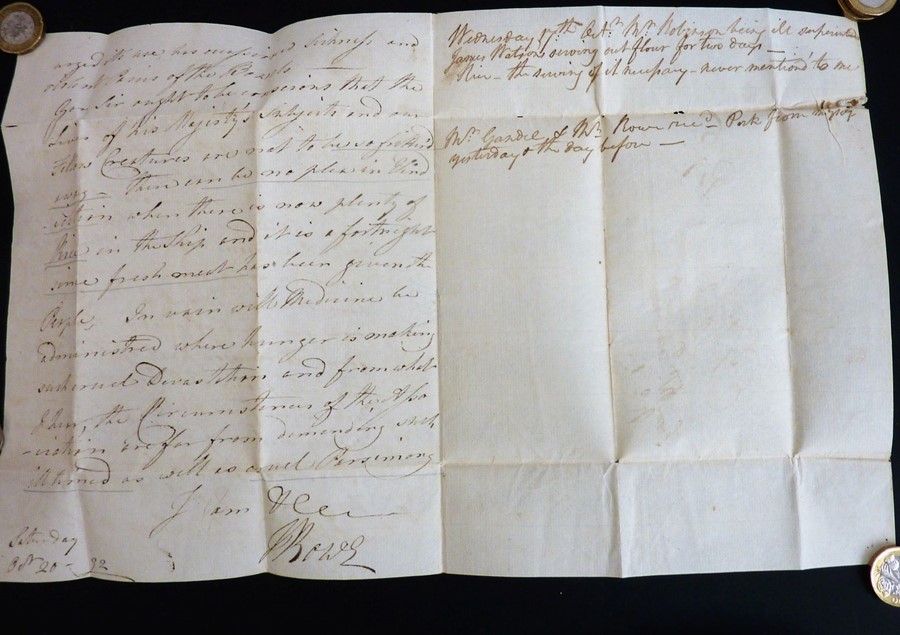 urged it are has occasioned Sickness and
of the People
You Sir ought to be conscious that the
Lives of his Majesty's Subjects and our
Fellow Creatures are not to be so
away — There can be no plea in Vind
-ication when there is now plenty of
Rice in the Ship and it is a fortnight
since fresh meat has been given the
People, In vain will Medicine be
administered where hunger is making
such cruel Devastation and from what
I hear, the Circumstances of the Asso
-ciation are far from demanding such
ill timed as well as cruel Parsimony
I am &c
Rowe
Saturday
Octr 20 - 92
Wednesday 17th Octr. Mr. Robinson being ill
James Watson serving out flour for two days —
Rice — the serving of it necessary - never mention'd to me
Mr. Gandell & Mr. Rowe recd. Pork from
yesterday & the day before —